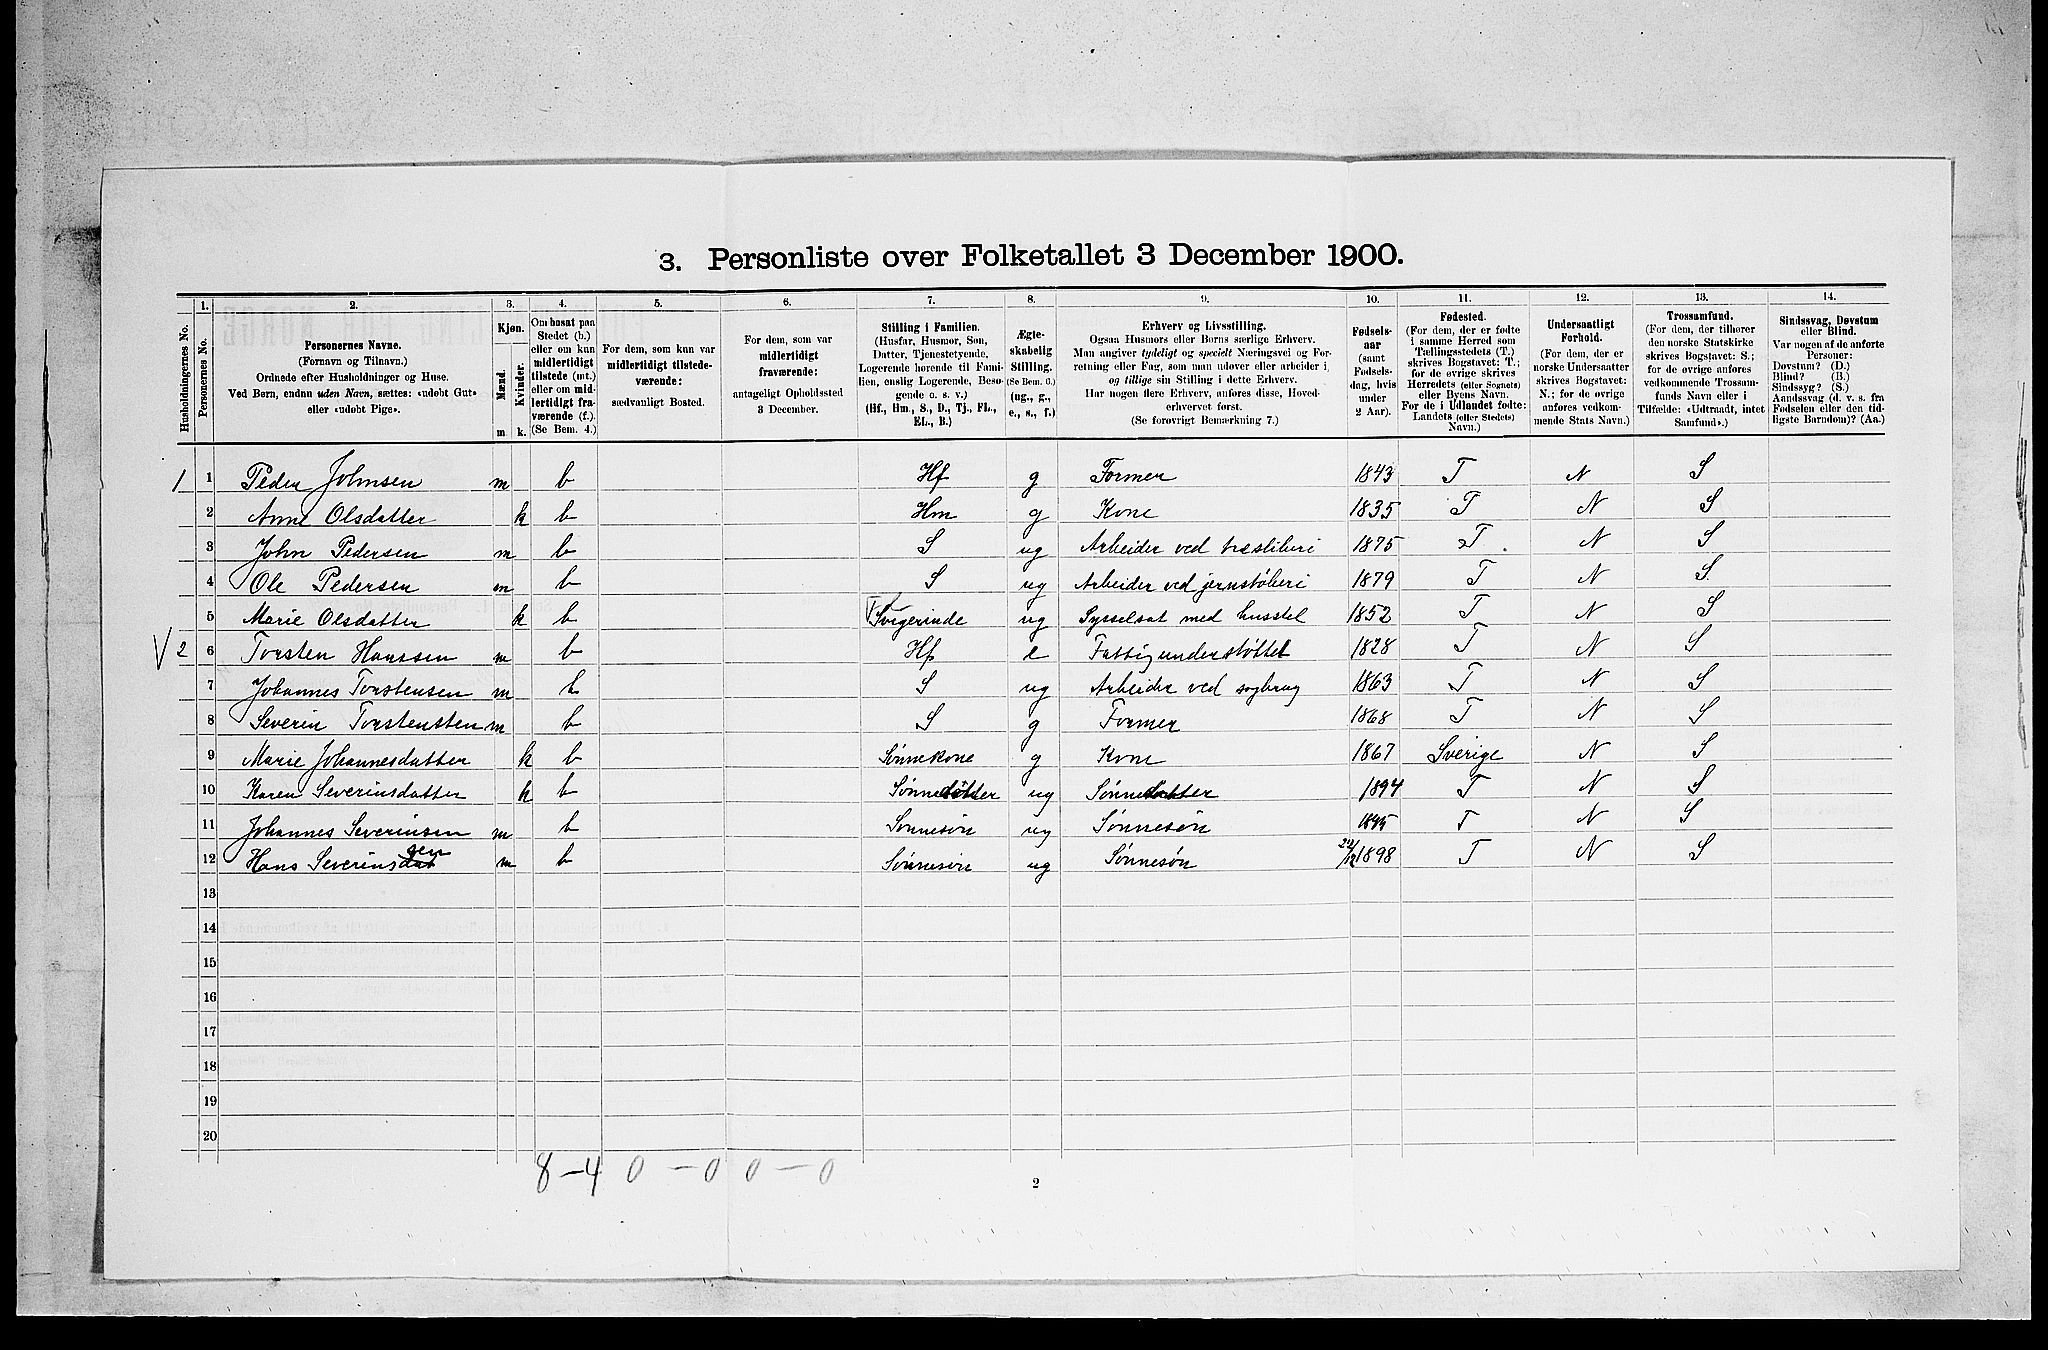 3. Personliste over Folketallet 3 December 1900.
1. 2. 3. 4. 5. 6. 7. 8. 9. 10. 11. 12. 13. 14.
Husholdningernes No.
Personernes No.
Personernes Navne.
(Fornavn og Tilnavn.)
Ordnede efter Husholdninger og Huse.
Ved Børn, endnu uden Navn, sættes: «udøbt Gut»
eller «udøbt Pige».
Kjøn.
Mænd.
Kvinder.
m k.
Om bosat paa
Stedet (b.)
eller om kun
midlertidigt
tilstede (mt.)
eller om mid-
lertidigt fra-
værende (f.).
(Se Bem. 4.)
For dem, som kun var
midlertidigt tilstede-
værende:
sædvanligt Bosted.
For dem, som var
midlertidigt
fraværende:
antageligt Opholdssted
3 December.
Stilling i Familien.
(Husfar, Husmor, Søn,
Datter, Tjenestetyende,
Logerende hørende til Fami-
lien, enslig Logerende, Besø-
gende o. s. v.)
(Hf., Hm., S., D., Tj., FL.,
EL., B.)
Ægte-
skabelig
Stilling.
(Se Bem. 6.)
(ug., g.,
e., s., f.)
Erhverv og Livsstilling.
Ogsaa Husmors eller Børns særlige Erhverv.
Man angiver tydeligt og specielt Næringsvei og For-
retning eller Fag, som man udøver eller arbeider i,
og tillige sin Stilling i dette Erhverv.
Har nogen flere Erhverv, anføres disse, Hoved-
erhvervet først.
(Se forøvrigt Bemærkning 7.)
Fødsels-
aar
(samt
Fødsels-
dag, hvis
under
2 Aar).
Fødested.
(For dem, der er fødte
i samme Herred som
Tællingsstedets (T.)
skrives Bogstavet: T.;
for de øvrige skrives
Herredets (eller Sognets)
eller Byens Navn.
For de i Udlandet fødte:
Landets (eller Stedets)
Navn.)
Undersaatligt
Forhold.
(For dem, der er
norske Undersaatter
skrives Bogstavet:
N.; for de øvrige
anføres vedkom-
mende Stats Navn.)
Trossamfund.
(For dem, der tilhører
den norske Statskirke
skrives Bogstavet: S.;
for de øvrige anføres
vedkommende Trossam-
funds Navn eller i
Tilfælde: «Udtraadt, intet
Samfund».)
Sindssvag, Døvstum
eller Blind.
Var nogen af de anførte
Personer:
Døvstum? (D.)
Blind? (B.)
Sindssyg? (S.)
Aandssvag (d. v. s. fra
Fødselen eller den tid-
ligste Barndom)? (Aa.)
1 1 Peder Johnsen m b Hf g Former 1843 T N S
2 Anne Olsdatter k b Hm g Kone 1835 T N S
3 John Pedersen m b S ug Arbeider ved træsliberi 1875 T. N S
4 Ole Pedersen m b S ug Arbeider ved jernstøberi 1879 T N S.
5 Marie Olsdatter k b Svigerinde ug Sysselsat med husstel 1852 T N S
V 2 6 Torsten Hanssen m b Hf e Fattigunderstøttet 1828 T N S
7 Johannes Torstensen m b S ug Arbeider ved sagbrug 1863 T N S
8 Severin Torstensten m b S g Former 1868 T N S
9 Marie Johannesdatter k b Sønnekone g Kone 1867 Sverige N S
10 Karen Severinsdatter k b Sønnedatter ug Sønnedatter 1894 T N S
11 Johannes Severinsen m b Sønnesøn ug Sønnesøn 1895 T N S
12 Hans Severinsdat sen m b Sønnesøn ug Sønnesøn /12 1898 T N S
13
14
15
16
17
18
19
20
8 – 4 0 – 0 0 – 0
2